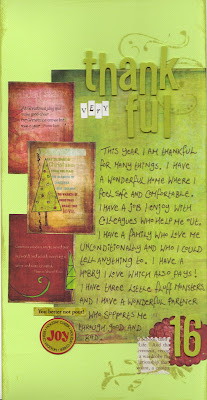 thank
VERY
ful
THIS YEAR I AM THANKFUL
FOR MANY THINGS. I HAVE
A WONDERFUL HOME WHERE I
FEEL SAFE AND COMFORTABLE.
I HAVE A JOB I ENJOY WITH
COLLEAGUES WHO HELP ME OUT.
I HAVE A FAMILY WHO LOVE ME
UNCONDITIONALLY AND WHO I COULD
TELL ANYTHING TO. I HAVE A
HOBBY I LOVE WHICH ALSO PAYS!
I HAVE THREE LITTLE FLUFF MONSTERS
AND I HAVE A WONDERFUL PARTNER
WHO SUPPORTS ME
THROUGH GOOD AND
BAD.
You better not pout!
Joy
16